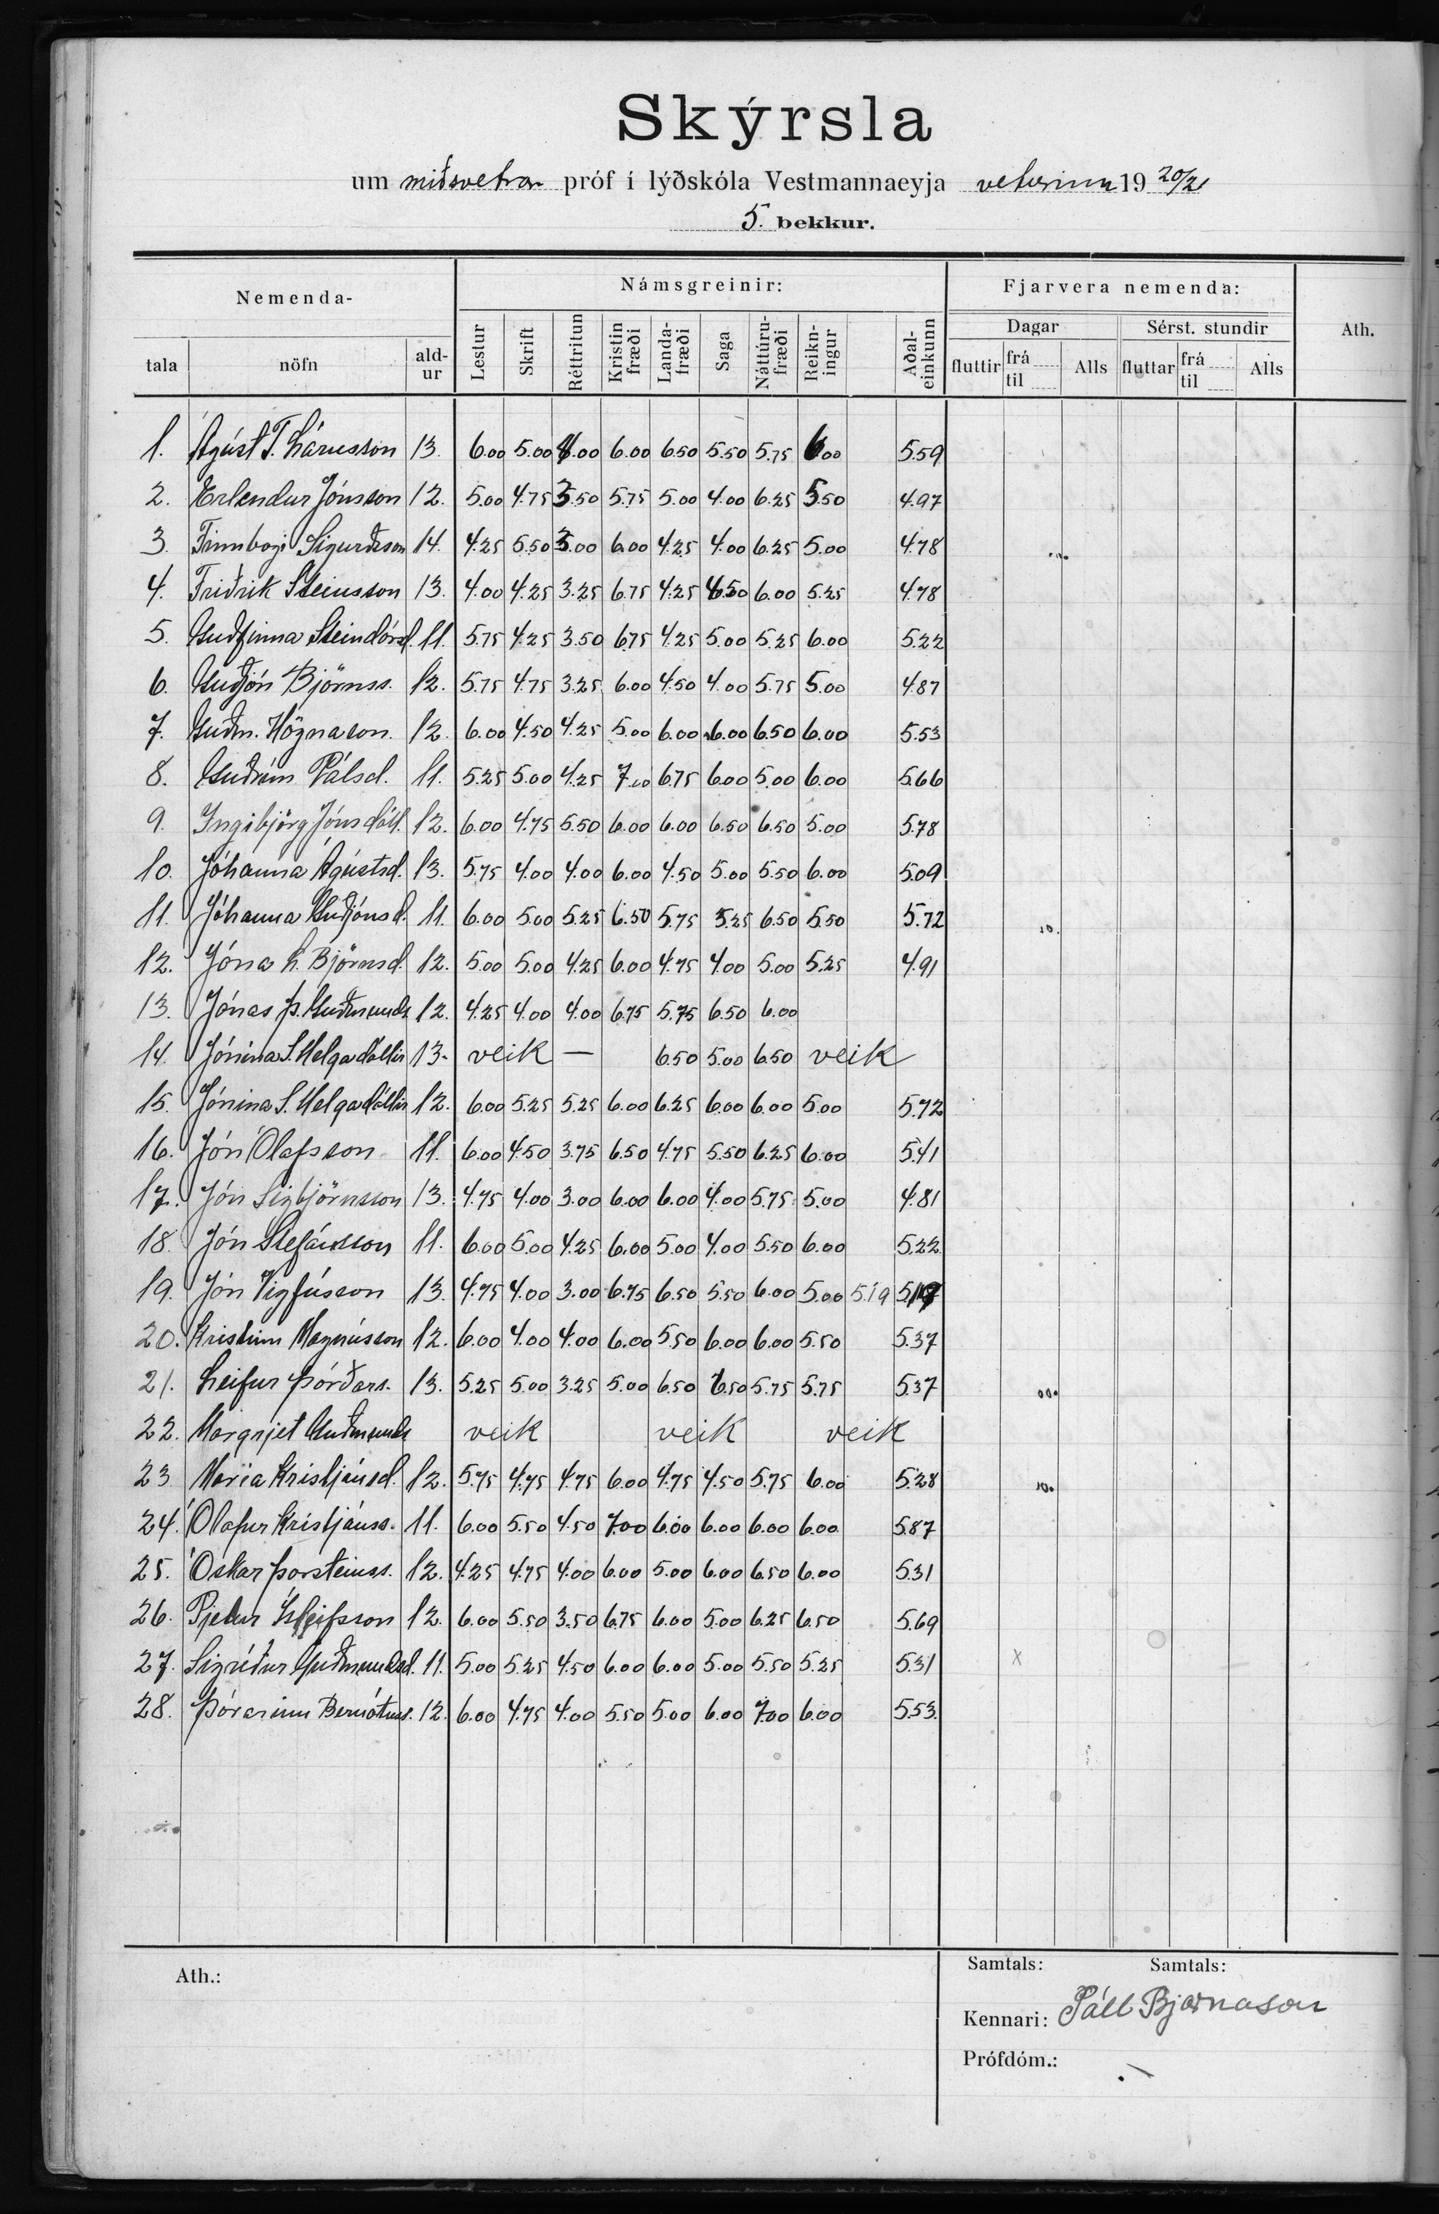 Skýrsla
um miðsvetrar próf í lýðskóla Vestmannaeyja veturinn 19 20/21
5. bekkur.
Nemenda- Námsgreinir: Fjarvera nemenda: Ath.
Dagar Sérst. stundir
tala nöfn ald-ur Lestur Skrift Réttritun Kristin fræði Landa-fræði Saga Náttúru-fræði Reikn-ingur Aðal-einkunn fluttir frá til Alls fluttar frá til Alls
1. Ágúst T. Lárusson 13. 6.00 5.00 4.00 6.00 6.50 5.50 5.75 6.00 5.59
2. Erlendur Jónsson 12. 5.00 4.75 3.50 5.75 5.00 4.00 6.25 5.50 4.97
3. Finnbogi Sigurðsson 14. 4.25 5.50 3.00 6.00 4.25 4.00 6.25 5.00 4.78
4. Friðrik Steinsson 13. 4.00 4.25 3.25 6.75 4.25 4.50 6.00 5.25 4.78
5. Guðfinna Steindórsd. 11. 5.75 4.25 3.50 6.75 4.25 5.00 5.25 6.00 5.22
6. Guðjón Björnss. 12. 5.75 4.75 3.25 6.00 4.50 4.00 5.75 5.00 4.87
7. Guðm. Högnason. 12. 6.00 4.50 4.25 5.00 6.00 6.00 6.50 6.00 5.53
8. Guðrún Pálsd. 11. 5.25 5.00 4.25 7.00 6.75 6.00 5.00 6.00 5.66
9. Ingibjörg Jónsdótt. 12. 6.00 4.75 5.50 6.00 6.00 6.50 6.50 5.00 5.78
10. Jóhanna Ágústsd. 13. 5.75 4.00 4.00 6.00 4.50 5.00 5.50 6.00 5.09
11. Jóhanna Guðjónsd. 11. 6.00 5.00 5.25 6.50 5.75 5.25 6.50 5.50 5.72
12. Jóna L. Björnsd. 12. 5.00 5.00 4.25 6.00 4.75 4.00 5.00 5.25 4.91
13. Jónas Þ. Guðmunds 12. 4.25 4.00 4.00 6.75 5.75 6.50 6.00
14. Jónína S. Helgadóttir 13. veik — 6.50 5.00 6.50 veik
15. Jónína S. Helgadóttir 12. 6.00 5.25 5.25 6.00 6.25 6.00 6.00 5.00 5.72
16. Jón Ólafsson 11. 6.00 4.50 3.75 6.50 4.75 5.50 6.25 6.00 5.41
17. Jón Sigbjörnsson 13. 4.75 4.00 3.00 6.00 6.00 4.00 5.75 5.00 4.81
18. Jón Stefánsson 11. 6.00 5.00 4.25 6.00 5.00 4.00 5.50 6.00 5.22
19. Jón Vigfússon 13. 4.75 4.00 3.00 6.75 6.50 5.50 6.00 5.00 5.19 5.19
20. Kristinn Magnússon 12. 6.00 4.00 4.00 6.00 5.50 6.00 6.00 5.50 5.37
21. Leifur Þórðars. 13. 5.25 5.00 3.25 5.00 6.50 6.50 5.75 5.75 5.37
22. Margrjet Guðmunds veik veik veik
23 María Kristjánsd. 12. 5.75 4.75 4.75 6.00 4.75 4.50 5.75 6.00 5.28
24. Ólafur Kristjánss. 11. 6.00 5.50 4.50 7.00 6.00 6.00 6.00 6.00 5.87
25. Óskar Þorsteinss. 12. 4.25 4.75 4.00 6.00 5.00 6.00 6.50 6.00 5.31
26. Pjetur Ísleifsson 12. 6.00 5.50 3.50 6.75 6.00 5.00 6.25 6.50 5.69
27. Sigríður Guðmundsd. 11. 5.00 5.25 4.50 6.00 6.00 5.00 5.50 5.25 5.31 x
28. Þórarinn Bernótuss. 12. 6.00 4.75 4.00 5.50 5.00 6.00 7.00 6.00 5.53.
Ath.: Samtals: Samtals:
Kennari: Páll Bjarnason
Prófdóm.: